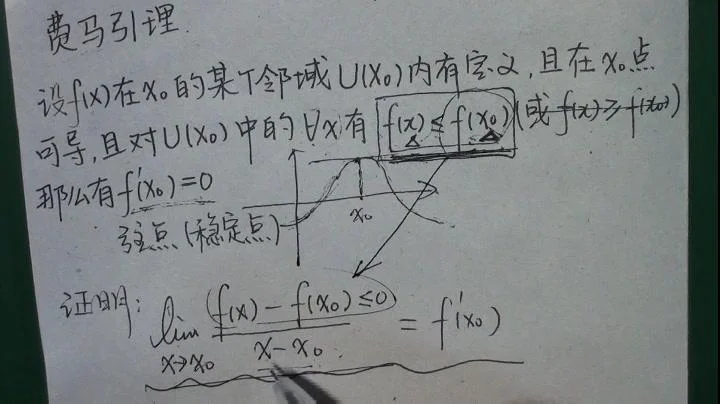 费马引理
设f(x)在x₀的某个邻域U(x₀)内有定义,且在x₀点
可导,且对U(x₀)中的∀x有f(x)≤f(x₀)(或f(x)≥f(x₀))
那么有f'(x₀)=0
x₀
驻点(稳定点)
证明:
lim (f(x)-f(x₀)≤0) / (x-x₀) = f'(x₀)
x→x₀